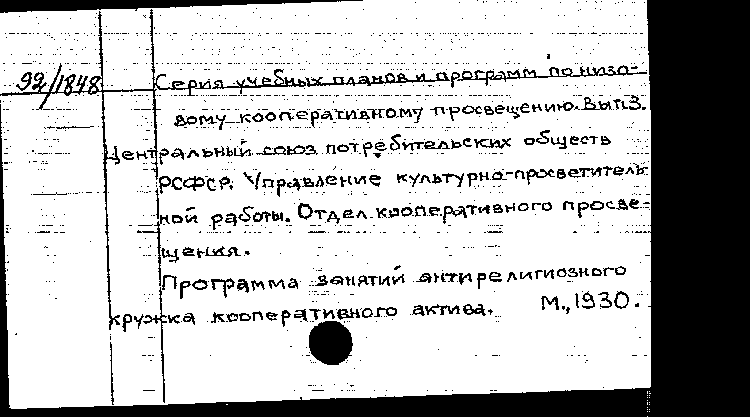 92/1848 Серия учебных планов и программ по низо-
вому кооперативному просвещению. Вып.3.
Центральный союз потребительских обществ
РСФСР. Управление культурно-просветитель
ной работы. Отдел кооперативного просве-
щения.
Программа занятий антирелигиозного
кружка кооперативного актива. М., 1930.